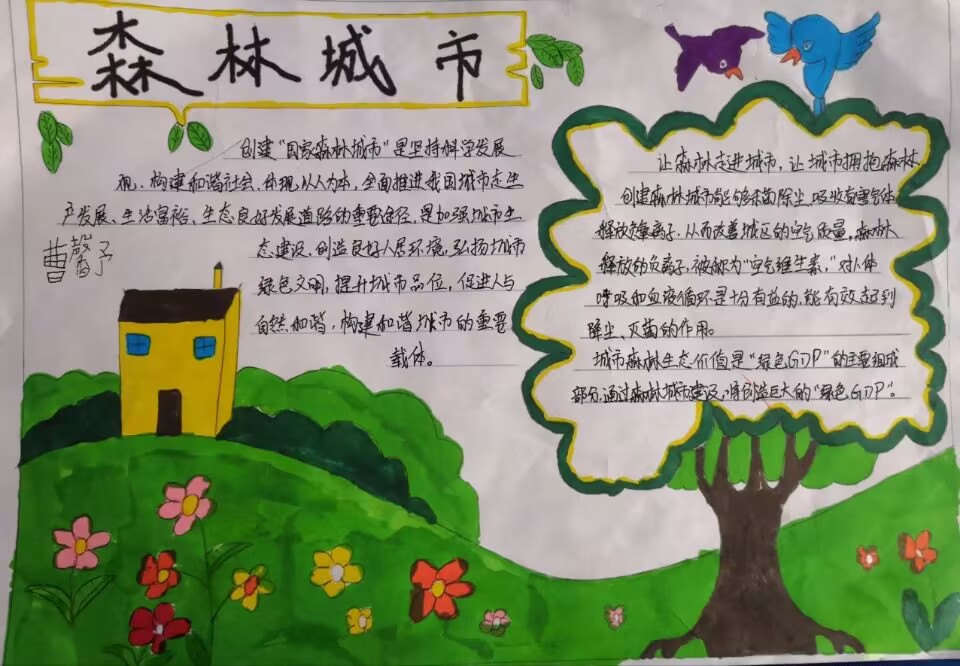 森林城市
创建“国家森林城市”是坚持科学发展
观、构建和谐社会、体现以人为本，全面推进我国城市走生
产发展、生活富裕、生态良好发展道路的重要途径，是加强城市生
态建设，创造良好人居环境，弘扬城市
绿色文明，提升城市品位，促进人与
自然和谐，构建和谐城市的重要
载体。
曹馨予
让森林走进城市，让城市拥抱森林
创建森林城市能够杀菌除尘，吸收有害气体
释放负离子，从而改善城区的空气质量，森林
释放的负离子，被称为“空气维生素，”对人体
呼吸和血液循环是十分有益的，能有效起到
降尘、灭菌的作用。
城市森林生态价值是“绿色GDP”的主要组成
部分，通过森林城市建设，将创造巨大的“绿色GDP”。